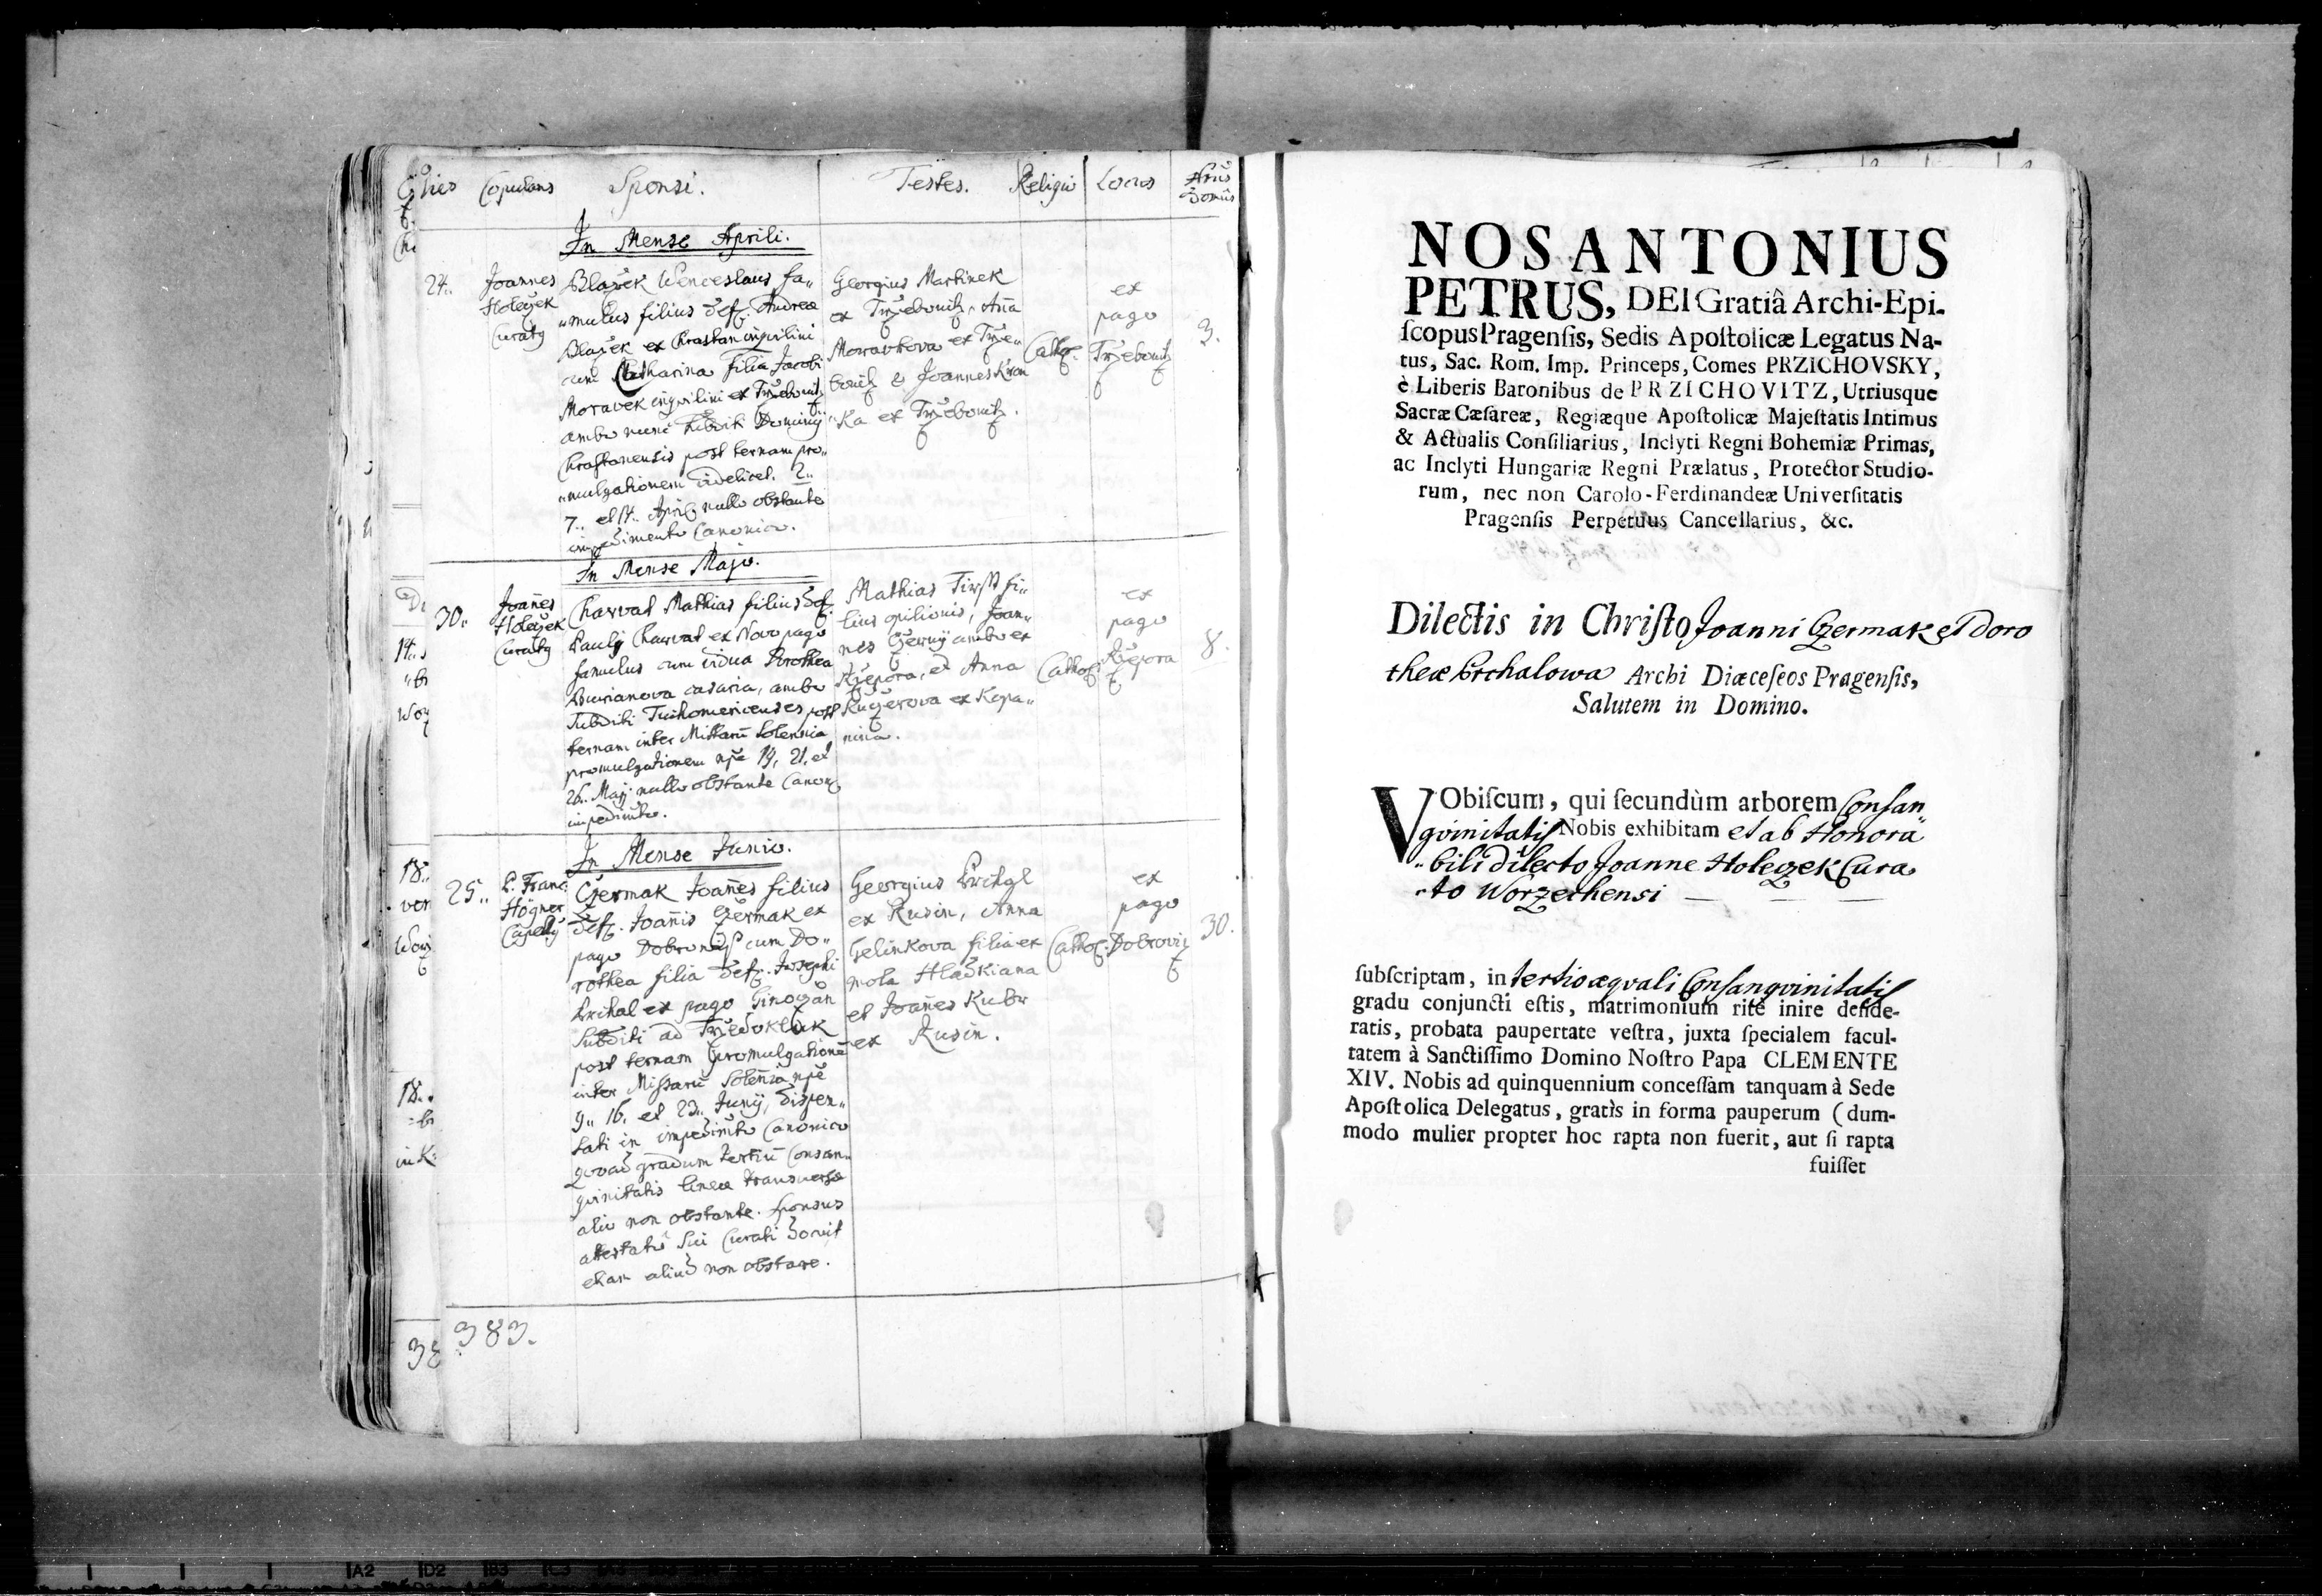 Dies Copulans Sponsi. Testes. Religio Locus Nrus Domus
In Mense Aprili.
24.. Joannes Holeczek Curatg
Blažek Wenceslaus fa„
„mulus filius def. Andreæ
Blažek ex Chrastan inqvilini
cum Catharina filia Jacobi
Moravek inqvilini ex Trzebonitz
ambo nunc subditi Dominij
Chrastanensis post ternam pro„
„mulgationem videlicet. 2..
7.. et 14.. April. nullo obstante
impedimento Canonico.
Georgius Martinek
ex Trzebonitz, Aña
Moravkova ex Trze„
bonitz & Joannes Kron
„ka ex Trzebonitz.
Cathol.
ex
pago
Trzebonitz
3.
In Mense Majo.
30.. Joañes Holeczek Curatg
Charvat Mathias filius def.
Paulj Charvat ex Novo pago
famulus cum vidua Dorothea
Burianova casaria, ambo
Subditi Tuchomericenses post
ternam inter Missarũ Solennia
promulgationem npe 19, 21, et
26.. Maji nullo obstante Canon.
impedimto.
Mathias Tirst fi„
lius opilionis, Joan„
nes Czerny ambo ex
Rzepora, et Anna
Kuczerova ex Kopa„
nina.
Cathol.
ex
pago
Rzepora
8.
In Mense Junio.
25.. P. Franc. Högner Capellg
Czermak Joañes filius
def. Joañis Czermak ex
pago Dobrowiz cum Do„
rothea filia def. Josephi
Brchal ex pago Ginoczan
Subditi ad Trzedokluk
post ternam promulgationẽ
inter Missarũ Soleñia npe
9.. 16. et 23.. Junij, dispen„
sati in impedimto Canonico
qvoad gradum tertiũ Consan„
gvinitatis lineæ transversæ
alio non obstante. Sponsus
attestatũ sui Curati docuit
etiam aliud non obstare.
Georgius Prchgl
ex Rusin, Anna
Gelinkova filia ex
mola Hladkiana
et Joañes Kubr
ex Rusin.
Cathol.
ex
pago
Dobroviz
30.
383.
NOS ANTONIUS
PETRUS, DEI Gratiâ Archi-Epi-
ſcopus Pragenſis, Sedis Apoſtolicæ Legatus Na-
tus, Sac. Rom. Imp. Princeps, Comes PRZICHOVSKY,
è Liberis Baronibus de PRZICHOVITZ, Utriusque
Sacræ Cæſareæ, Regiæque Apoſtolicæ Majeſtatis Intimus
& Actualis Conſiliarius, Inclyti Regni Bohemiæ Primas,
ac Inclyti Hungariæ Regni Prælatus, Protector Studio-
rum, nec non Carolo-Ferdinandeæ Univerſitatis
Pragenſis Perpetuus Cancellarius, &c.
Dilectis in Chriſto Joanni Czermak et Doro
theæ Brchalowa Archi Diœceſeos Pragenſis,
Salutem in Domino.
VObiſcum, qui ſecundùm arborem Conſan„
gvinitatis Nobis exhibitam et ab Honora
„bili dilecto Joanne Holeczek Cura
„to Worzechensi
ſubſcriptam, in tertio æqvali Conſangvinitatis
gradu conjuncti eſtis, matrimonium ritè inire deſide-
ratis, probata paupertate veſtra, juxta ſpecialem facul-
tatem à Sanctiſſimo Domino Noſtro Papa CLEMENTE
XIV. Nobis ad quinquennium conceſſam tanquam à Sede
Apoſtolica Delegatus, gratìs in forma pauperum (dum-
modo mulier propter hoc rapta non fuerit, aut ſi rapta
fuiſſet